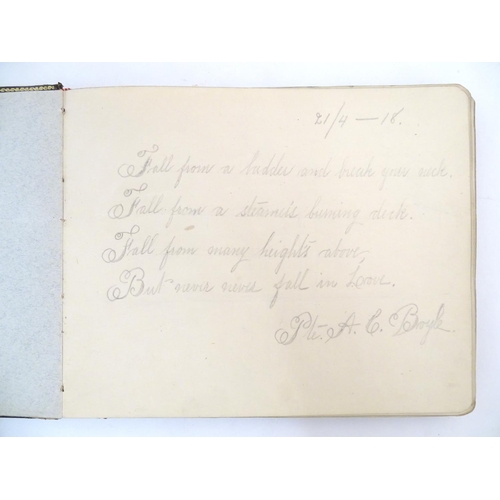 21/4 — 18.
Fall from a ladder and break your neck.
Fall from a steamer's burning deck.
Fall from many heights above
But never never fall in Love.
Pte. A. C.